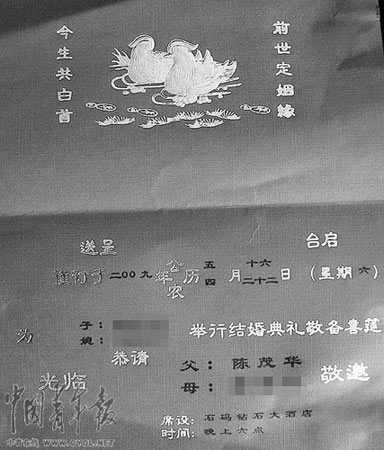 前世定姻緣
今生共白首
送呈 台启
谨订于二00九年 公历 五月十六日 (星期六)
农 四 二十二
为 子:
举行结婚典礼敬备喜筵
恭请
光临
父:陈茂华 敬邀
母:
席设:石码钻石大酒店
时间:晚上六点
中国青年报
中青在线 WWW.CYOL.NET